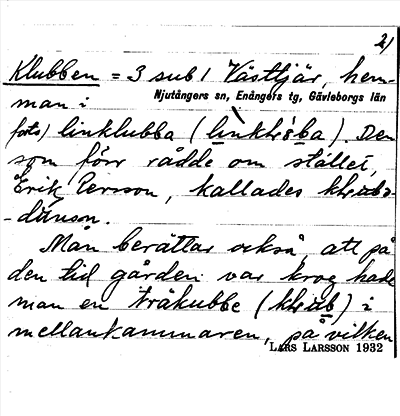 2)
Klubben = 3 sub 1 Västtjär, hem-
man i Njutångers sn, Enångers tg, Gävleborgs län
foto) linklubba (). Den
som förr rådde om stället,
Erik Persson, kallades
Man berättar också, att på
den tid gården var krog hade
man en träkubbe () i
mellankammaren, på vilken
LARS LARSSON 1932